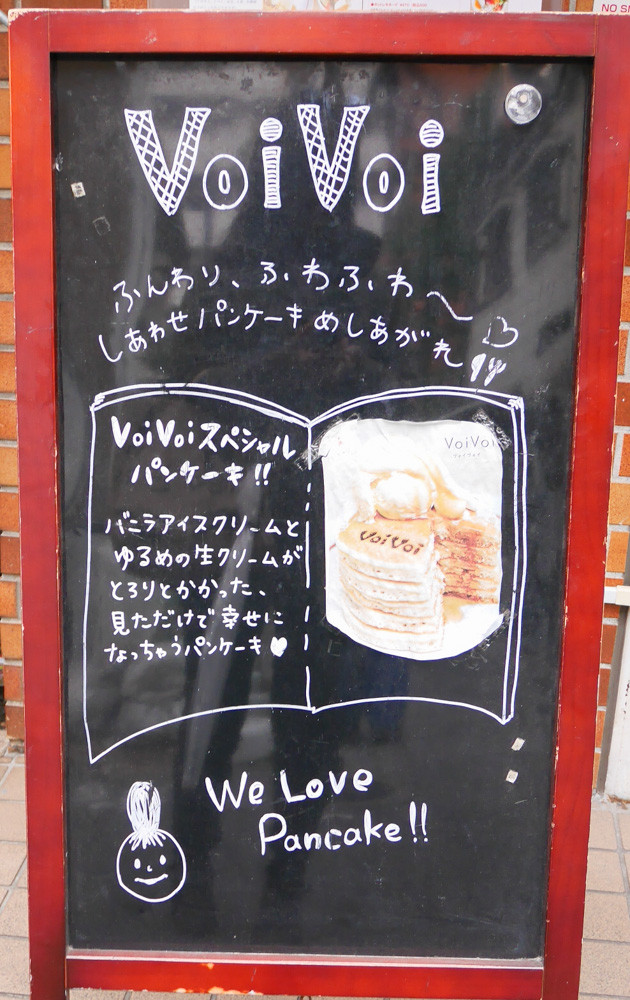 VoiVoi
ふんわり、ふわふわ〜
しあわせパンケーキめしあがれ
VoiVoiスペシャル
パンケーキ!!
バニラアイスクリームと
ゆるめの生クリームが
とろりとかかった、
見ただけで幸せに
なっちゃうパンケーキ♥
VoiVoi
VoiVoi
We Love
Pancake!!